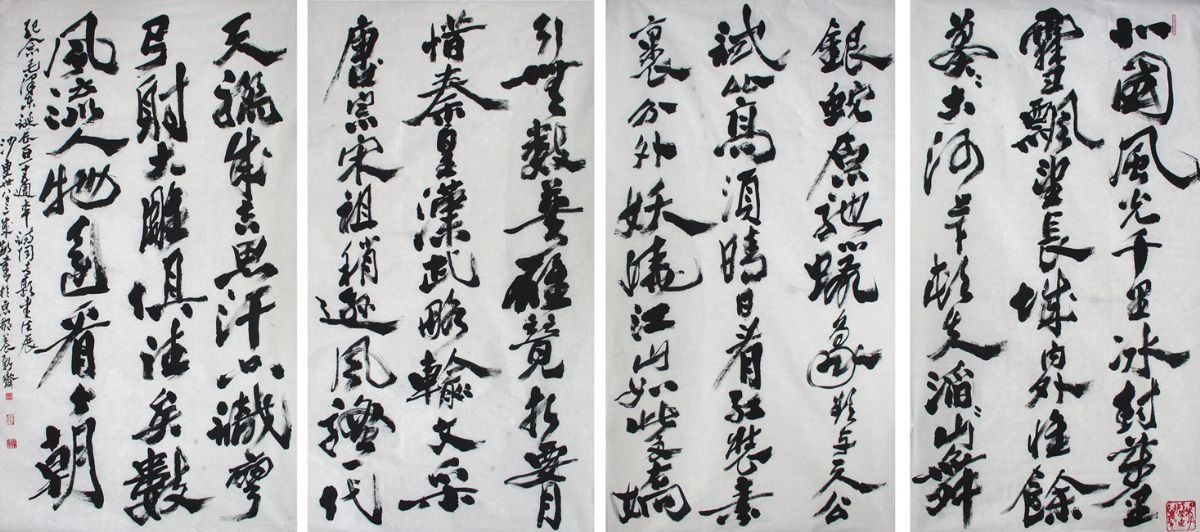 北國風光千里冰封萬里
雪飄望長城內外惟餘
莽〻大河上下頓失滔〻山舞
銀蛇原馳蠟象欲與天公
試比高須晴日看紅裝素
裹分外妖嬈江山如此多嬌
引無數英雄競折腰
惜秦皇漢武略輸文采
唐宗宋祖稍遜風騷一代
天驕成吉思汗只識彎
弓射大雕俱往矣數
風流人物還看今朝
紀念毛澤東誕辰百十週年書法展